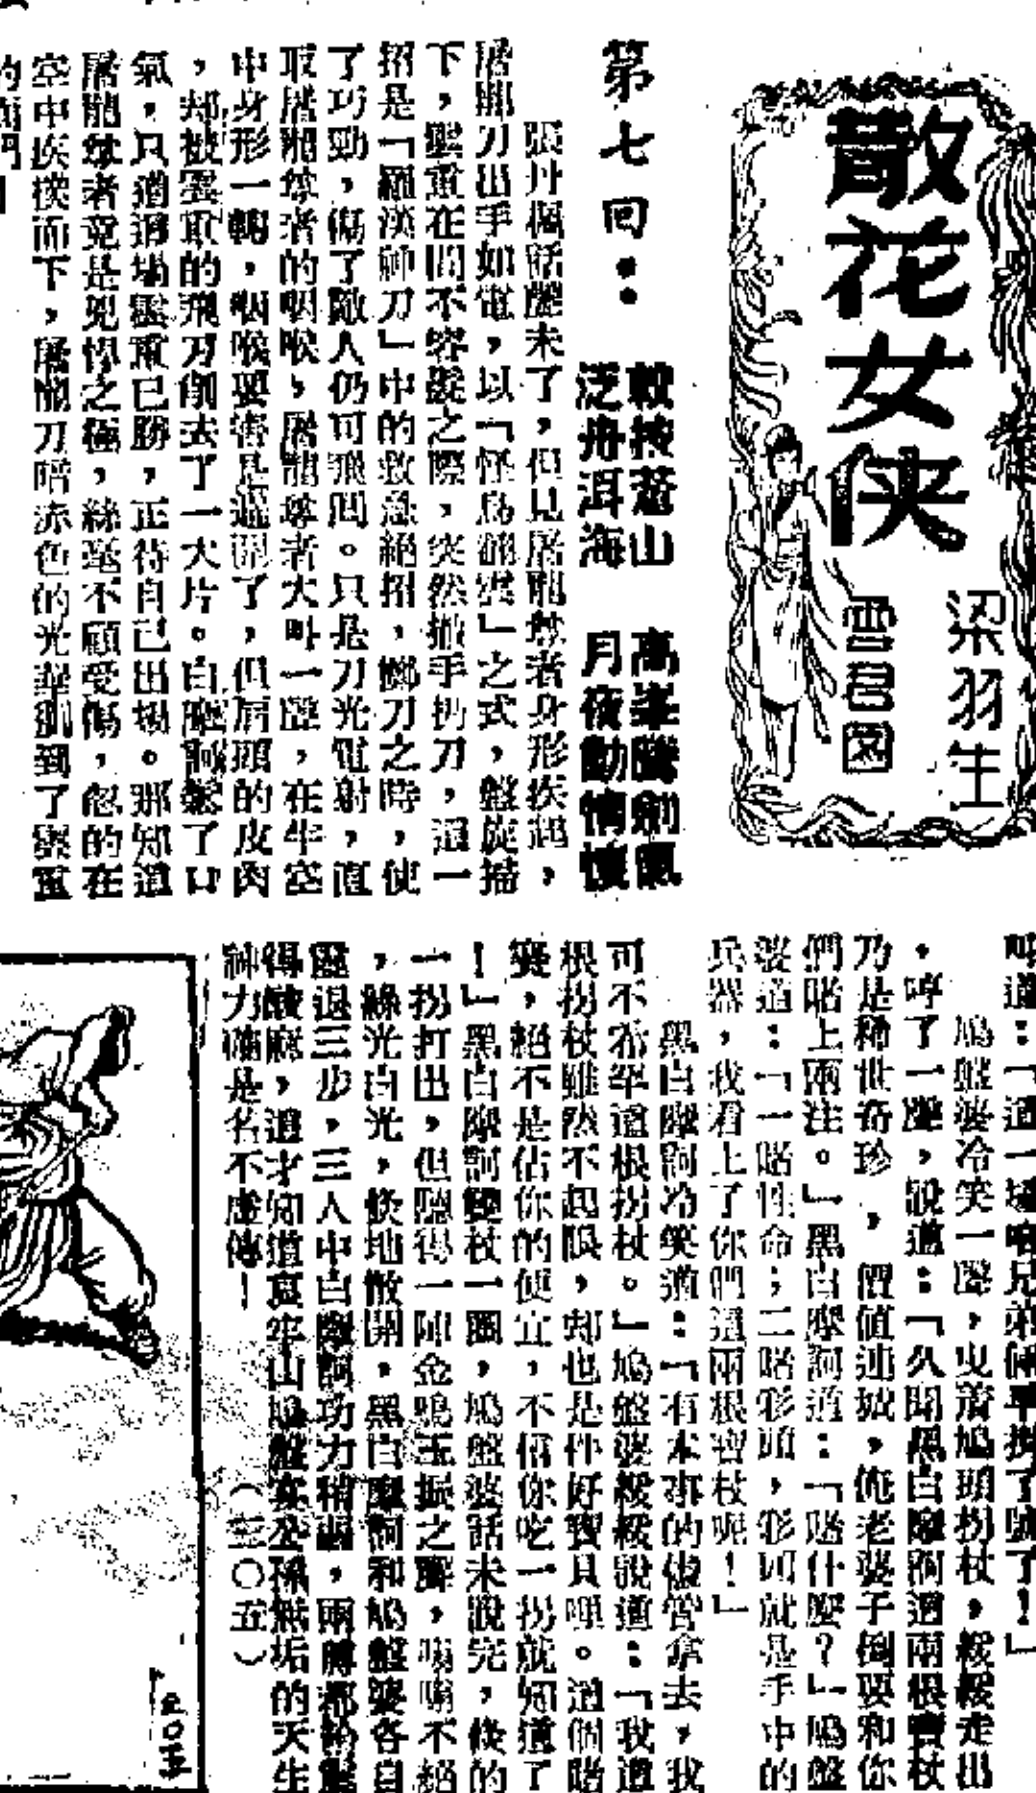 散花女俠
梁羽生
雲君図
第七回：
較技蒼山 高峯騰劍氣
泛舟洱海 月夜動情懷
張丹楓話聲未了，但見屠龍尊者身形疾起，
屠龍刀出手如電，以「怪鳥翻雲」之式，盤旋掃
下，靈重在間不容髮之際，突然撤手扔刀，這一
招是「羅漢神刀」中的救急絕招，擲刀之時，使
了巧勁，傷了敵人仍可飛回。只是刀光電射，直
取屠龍尊者的咽喉，屠龍尊者大叫一聲，在半空
中身形一轉，咽喉要害是避開了，但肩頭的皮肉
，却被雲重的飛刀削去了一大片。白摩訶鬆了口
氣，只道這場雲重已勝，正待自己出場。那知道
屠龍尊者竟是兇悍之極，絲毫不顧受傷，忽的在
空中疾撲而下，屠龍刀暗赤色的光華劃到了雲重
的面門！
喝道：「這一場咱兄弟倆平換了賬了！」
鳩盤婆冷笑一聲，曳着鳩頭拐杖，緩緩走出
，哼了一聲，說道：「久聞黑白摩訶這兩根寶杖
乃是稀世奇珍，價值連城，俺老婆子倒要和你
們賭上兩注。」黑白摩訶道：「賭什麼？」鳩盤
婆道：「一賭性命；二賭彩頭，彩頭就是手中的
兵器，我看上了你們這兩根寶杖呢！」
黑白摩訶冷笑道：「有本事的儘管拿去，我
可不希罕這根拐杖。」鳩盤婆緩緩說道：「我這
根拐杖雖然不起眼，却也是件好寶貝哩。這個賭
賽，絕不是佔你的便宜，不信你吃一拐就知道了
！」黑白摩訶雙杖一圈，鳩盤婆話未說完，倏的
一拐打出，但聽得一陣金鳴玉振之聲，嗡嗡不絕
，綠光白光，倏地散開，黑白摩訶和鳩盤婆各自
退三步，三人中白摩訶功力稍弱，兩臂都給震
得酸麻，這才知道哀牢山鳩盤婆公孫無垢的天生
神力確是名不虛傳！（二〇五）
二〇五